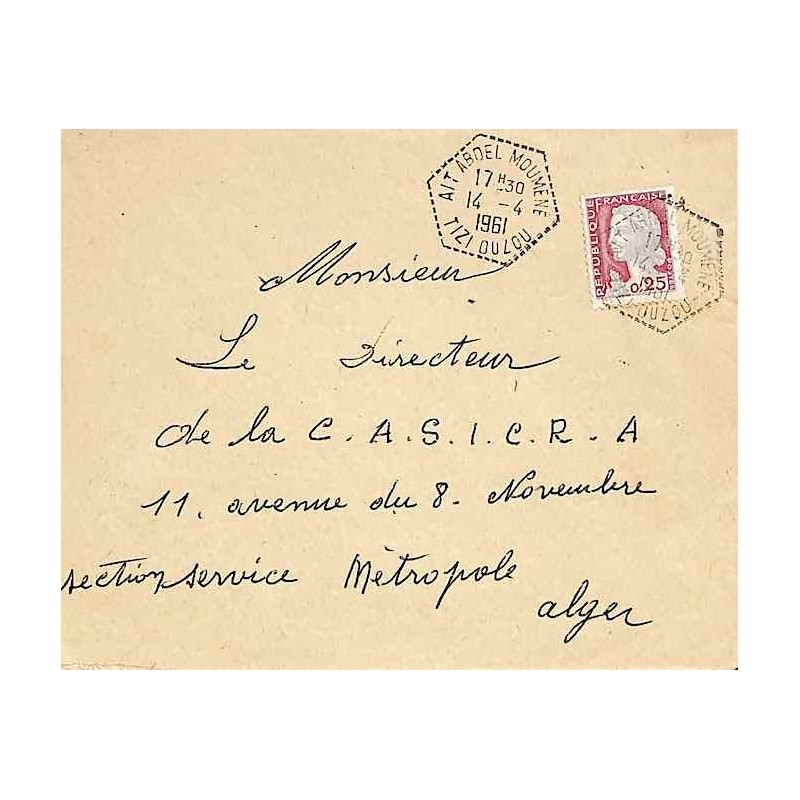 AIT ABDEL MOUMENE
17H30
14 -4
1961
TIZI OUZOU
REPUBLIQUE FRANÇAISE
0,25
MOUMENE
OUZOU
Monsieur
Le Directeur
de la C. A. S. I. C. R. A
11, avenue du 8. Novembre
section service Mètropole
alger